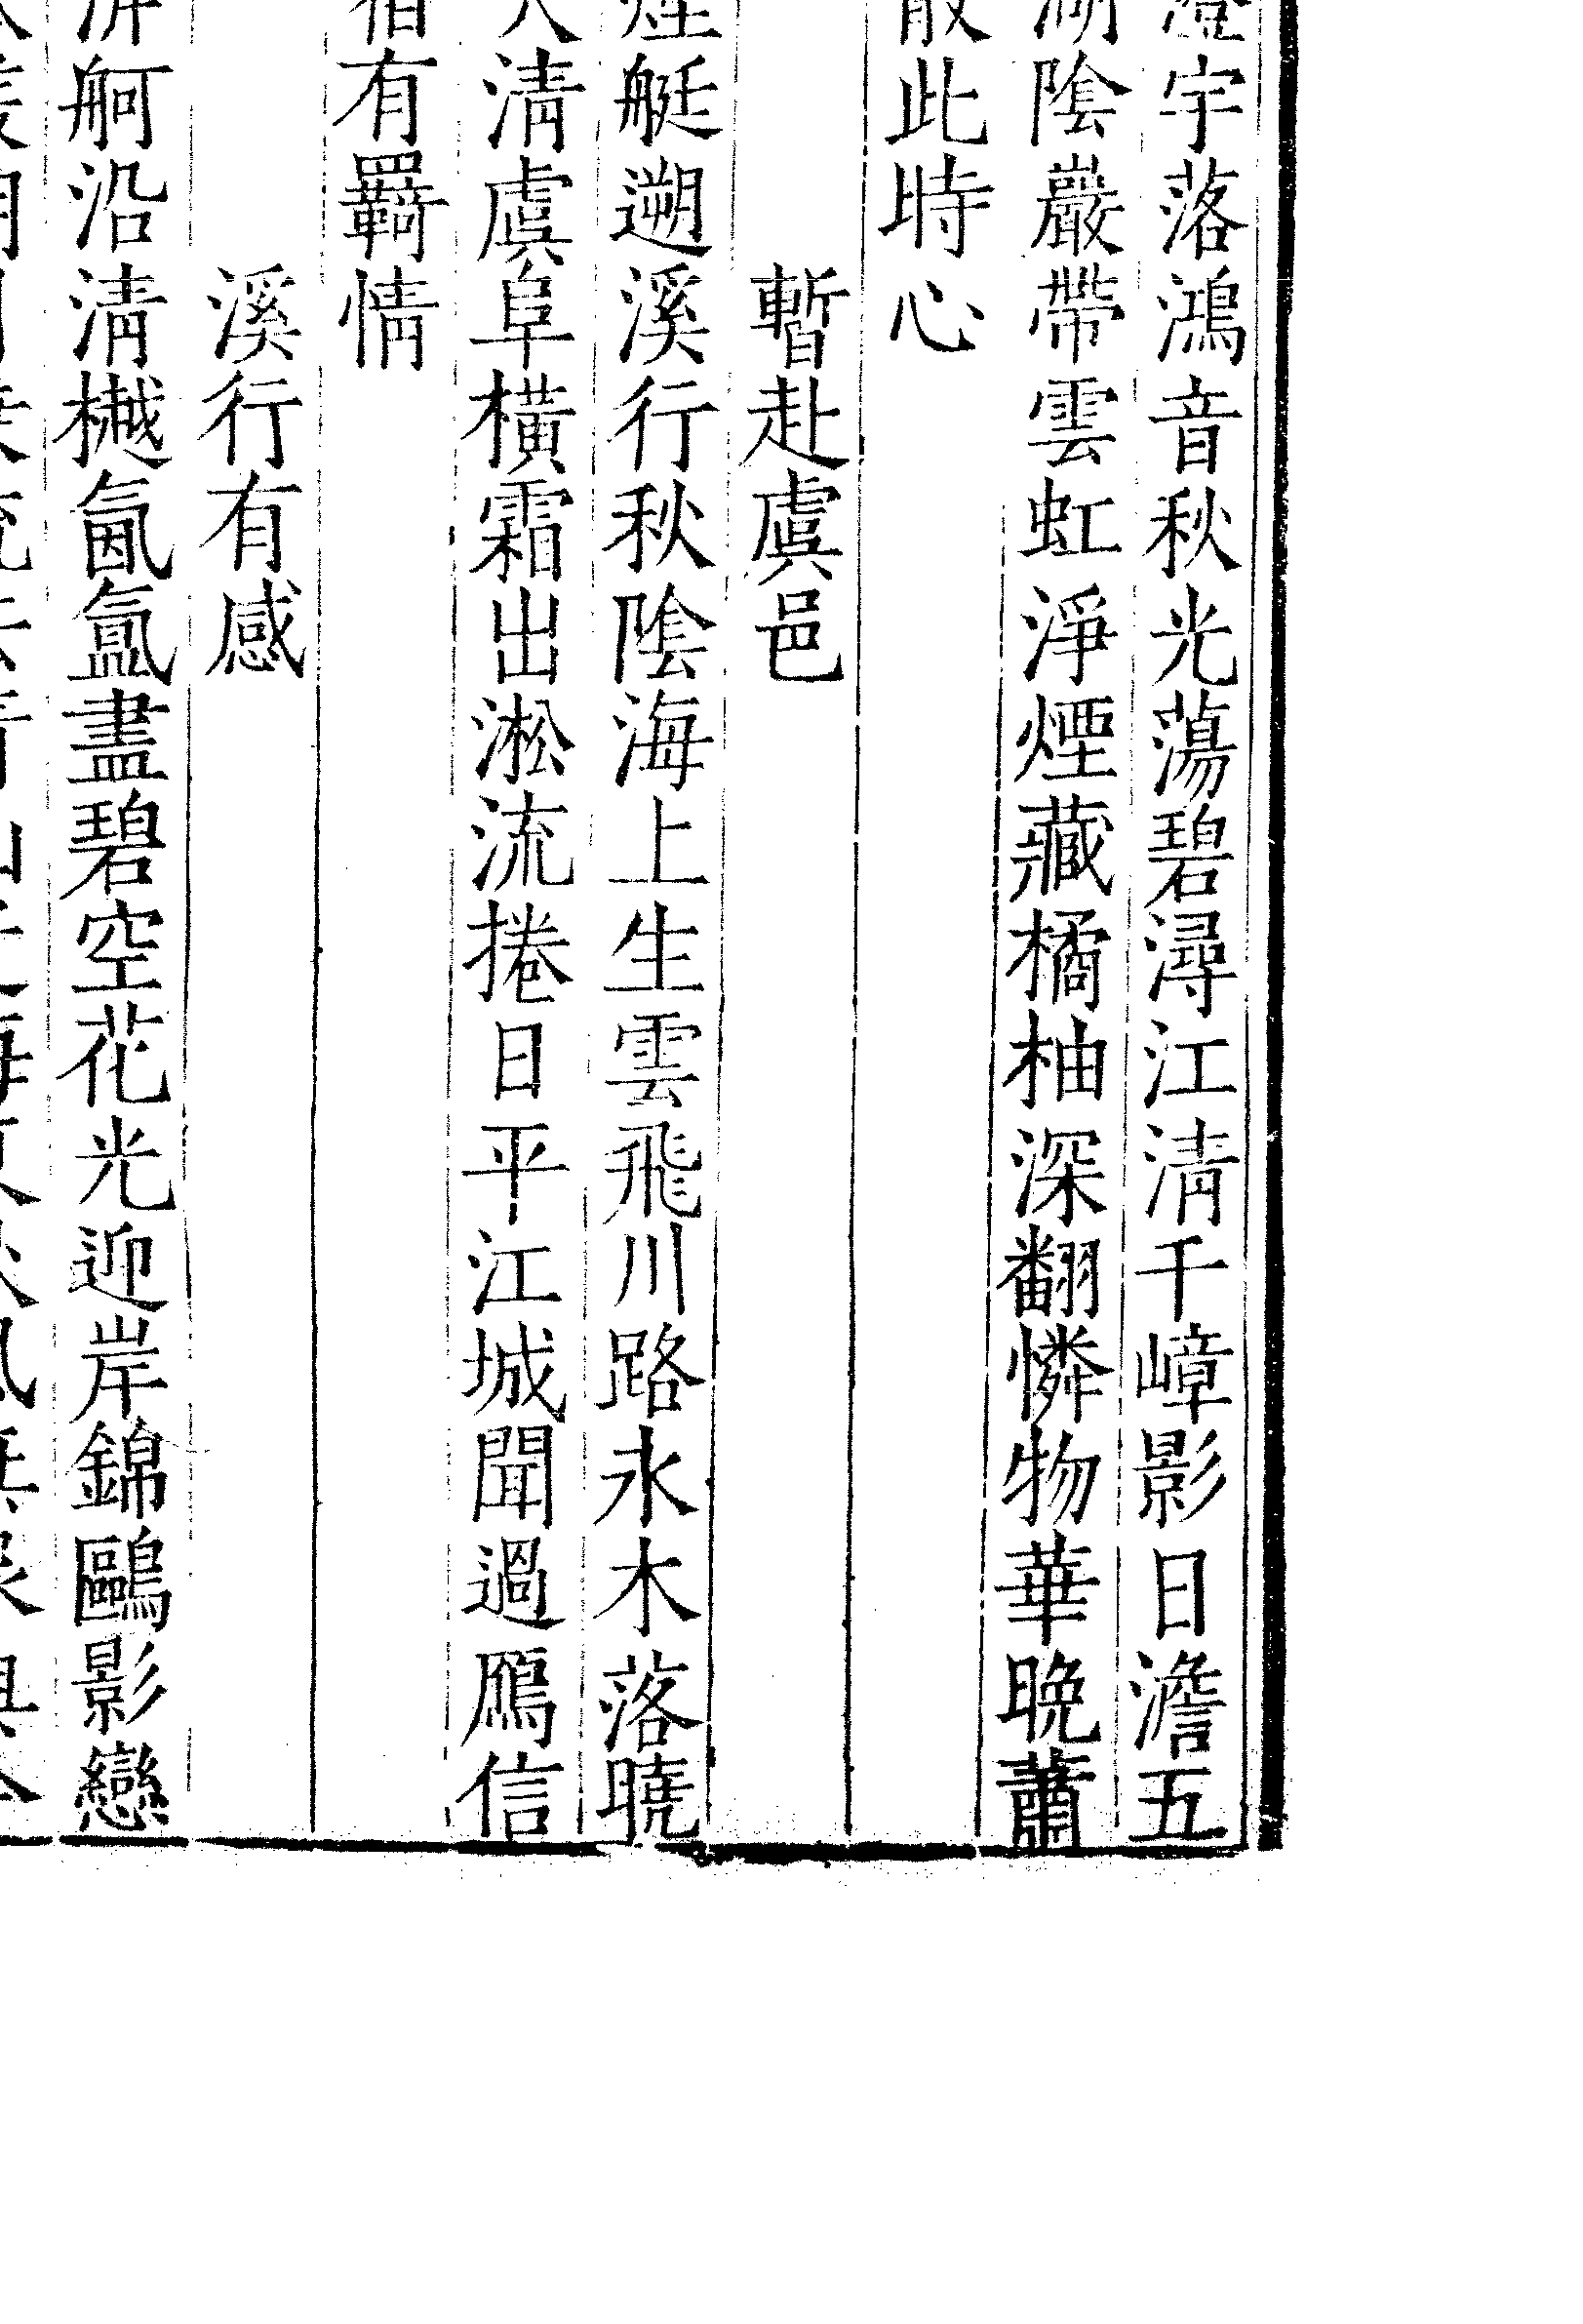 澄宇落鴻音秋光蕩碧潯江清千嶂影日澹五
湖陰巖帶雲虹淨煙藏橘柚深翻憐物華晚蕭
散此時心
暫赴虞邑
煙艇遡溪行秋陰海上生雲飛川路永木落曉
人清虞阜橫霜出淞流捲日平江城聞過鴈信
宿有羇情
溪行有感
舸沿清樾氤氳盡碧空花光迎岸錦鷗影戀